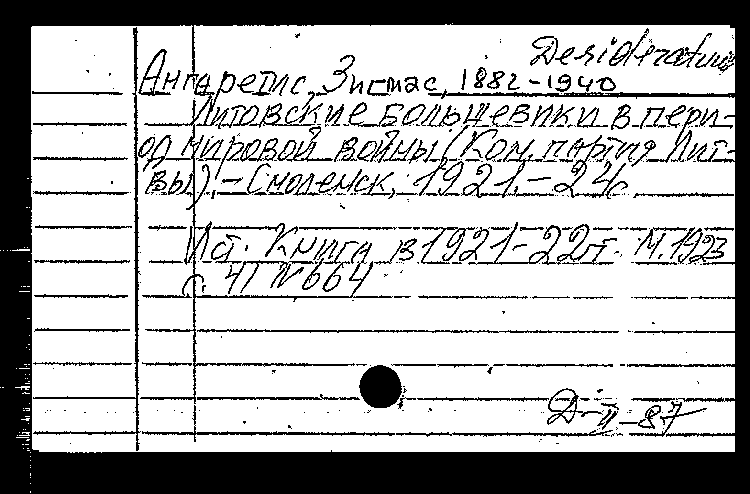 Desideratum
Ангаретис, Зигмас, 1882-1940
Литовские большевики в пери-
од мировой войны (Ком. партия Лит-
вы). - Смоленск, 1921. - 24 с.
Ист. Книга в 1921-22 гг. М. 1923
с. 41 № 664
Д-II-87